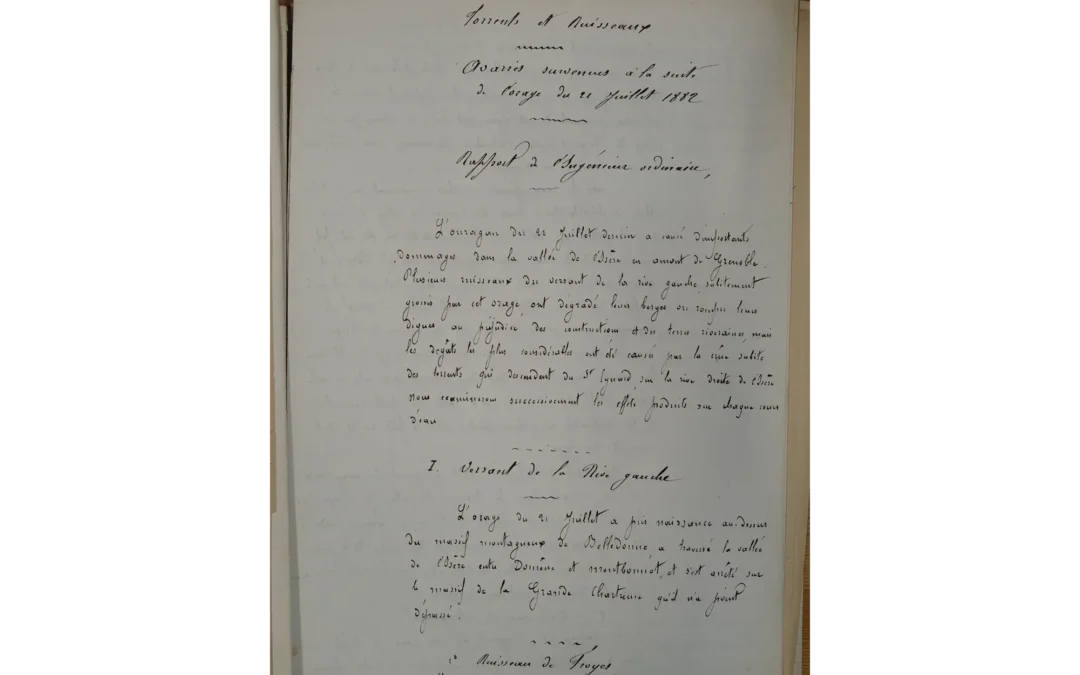 Torrents et Ruisseaux
Avaries survenues à la suite
de l'orage du 21 Juillet 1882
Rapport de l'Ingénieur ordinaire,
L'ouragan du 21 Juillet dernier a causé d'importants
dommages dans la vallée de l'Isère en amont de Grenoble.
Plusieurs ruisseaux du versant de la rive gauche, subitement
grossis par cet orage, ont dégradé leurs berges ou rompu leurs
digues au préjudice des constructions et des terres riveraines, mais
les dégâts les plus considérables ont été causés par la crûe subite
des torrents qui descendent du St Eynard, sur la rive droite de l'Isère
Nous examinerons successivement les effets produits sur chaque cours
d'eau
I. Versant de la Rive gauche
L'orage du 21 Juillet a pris naissance au-dessus
du massif montagneux de Belledonne, a traversé la vallée
de l'Isère entre Domène et Montbonnot, et s'est arrêté sur
le massif de la Grande Chartreuse qu'il n'a point
dépassé.
1° Ruisseau de